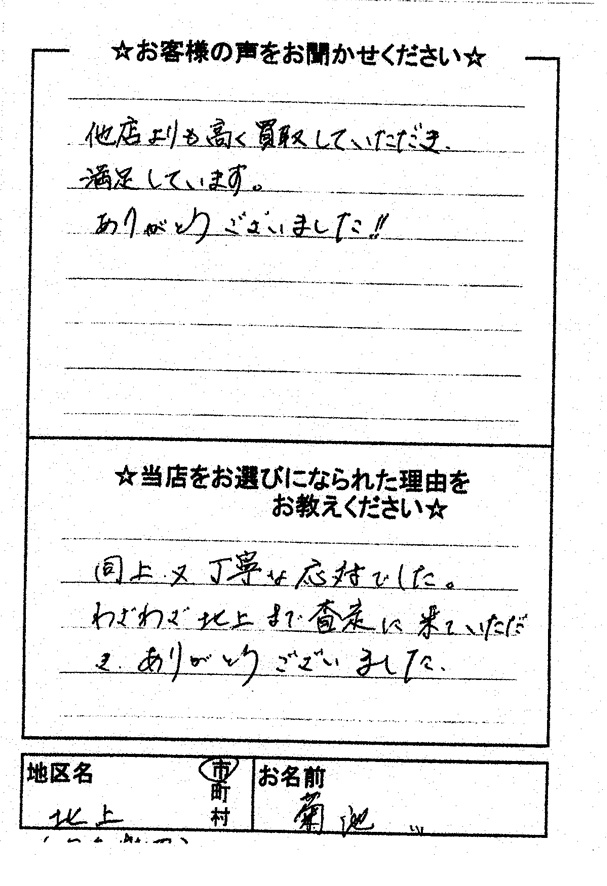 ☆お客様の声をお聞かせください☆
他店よりも高く買取していただき、
満足しています。
ありがとうございました!!
☆当店をお選びになられた理由を
お教えください☆
同上 又 丁寧な応対でした。
わざわざ北上まで査定に来ていただ
き、ありがとうございました。
地区名 市 お名前
町
北上 村 菊池